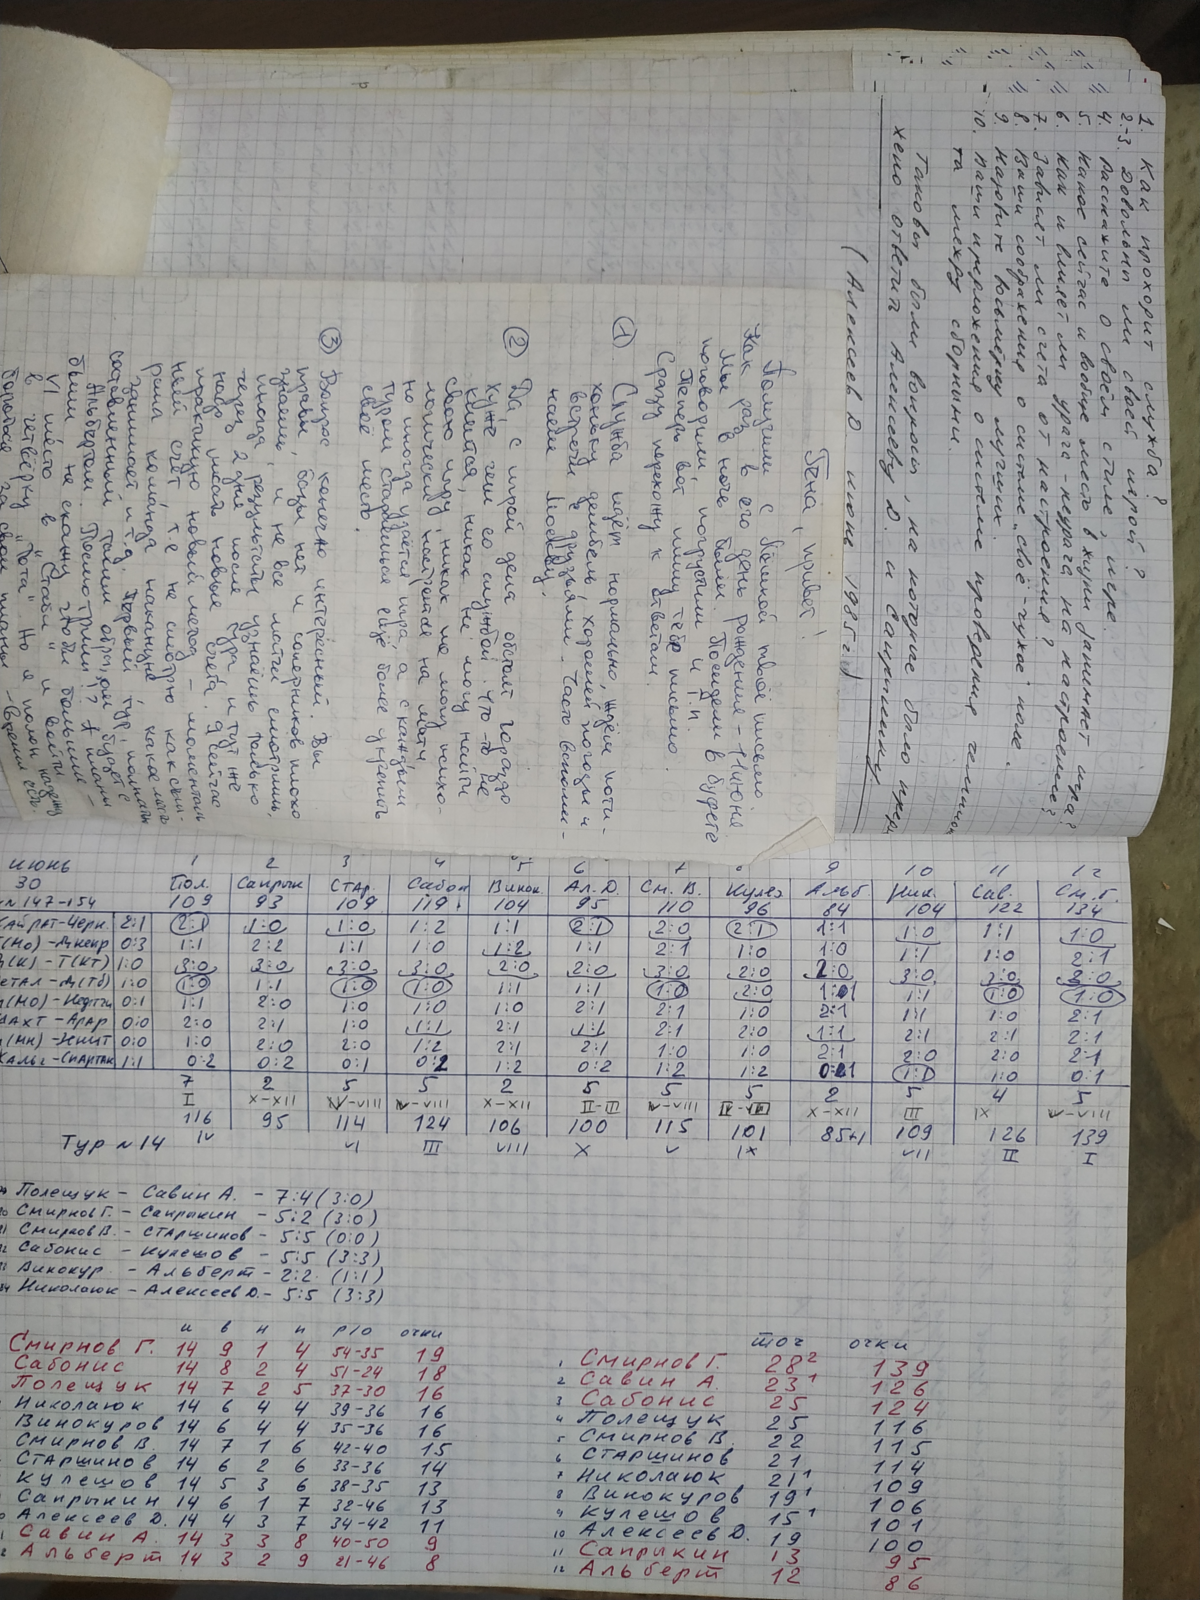 1. Как проходит служба?
2.-3. Довольны ли своей игрой?
4. Расскажите о своём стиле, игре.
5. Какое сейчас и вообще место в жизни занимает игра?
6. Как и влияет ли удача-неудача на настроение?
7. Зависят ли счета от настроения?
8. Ваши соображения о системе "своё-чужое" поле.
9. Назовите восьмёрку лучших.
10. Ваши предложения о системе проведения
та между сборными.
Таковы были вопросы, на которые было пред
жено ответить Алексееву Д. и Сапрыкину
(Алексеев Д июне 1985 г.)
Гена, привет!
Получили сВолной твоё письмо.
Как раз в его день рождения - 11 июня
Мы в ночь были. Посидели в буфете
поговорили, погрустили и т.п.
Теперь вот пишу тебе письмо.
Сразу перехожу к ответам.
① Служба идёт нормально, ждём поти-
хоньку дембель, хорошей погоды и
встречи с друзьями. Часто вспоми-
наем Москву.
② Да, с игрой дела обстоят гораздо
хуже чем со службой. Что-то не
клеится, никак не могу найти
свою игру, никак не могу психо-
логически настроится на матч,
но иногда удаётся игра, а с каждым
туром становится ещё более укрепить
своё место.
③ Вопрос конечно интересный. Вы
правы, базы нет и соперников плохо
знаем, и не все матчи смотрим,
иногда результаты узнаёшь только
через 2 дня после тура, и тут же
надо писать новые счета. Я сейчас
практикую новый метод - моменталь
ный счёт, т.е. не смотрю как сыг-
рала команда накануне, какое место
занимает и т.д. Первый тур, полность
составленный таким образом будет с
Альбертом. Посмотрим!? А планы
были не скажу чтобы большие -
VI место в "Стаби" и войти
в четвёрку "Тота". Но я полон надежд
бороться за свои планы - время есть.
июнь 1 2 3 4 5 6 7 8 9 10 11 12
30 Пол. Сапрык Стар. Сабон Винок. Ал. Д. См. В. Кулеш Альб Ник. Сав. См. Г.
№147-154 109 93 109 119 104 95 110 96 84 104 122 134
Кайрат-Черн. 2:1 2:1 1:0 1:0 1:2 1:1 2:1 2:0 2:1 1:1 1:0 1:1 1:0
Т(Мо)-Днепр 0:3 1:1 2:2 1:1 1:0 1:2 1:1 2:1 1:0 1:0 1:1 1:0 2:1
Д(К)-Т(КТ) 1:0 3:0 3:0 3:0 3:0 2:0 2:0 3:0 2:0 2:0 3:0 3:0 3:0
етал-Д(Тб) 1:0 1:0 1:1 1:0 1:0 1:1 1:1 1:0 2:0 1:1 1:1 1:0 1:0
Д(Мо)-Нефтчи 0:1 1:1 2:0 1:0 1:0 1:0 2:1 2:1 1:0 2:1 1:1 1:0 2:1
Шахт-Арар 0:0 2:0 2:1 1:0 1:1 2:1 1:1 2:1 2:0 1:1 2:1 2:1 2:1
Д(Мн)-Зенит 0:0 1:0 2:0 2:0 1:2 2:1 2:1 1:0 1:0 2:1 2:0 2:0 2:1
Жальг-Спартак 1:1 0:2 0:2 0:1 0:2 1:2 0:2 1:2 1:2 0:1 1:1 1:0 0:1
7 2 5 5 2 5 5 5 2 5 4 5
I X-XII IV-VIII IV-VIII X-XII II-III IV-VIII IV-VIII X-XII III IX IV-VIII
116 95 114 124 106 100 115 101 85+1 109 126 139
Тур №14 IV VI III VIII X V IX VII II I
Полещук - Савин А. - 7:4 (3:0)
Смирнов Г. - Сапрыкин - 5:2 (3:0)
Смирнов В. - Старшинов - 5:5 (0:0)
Сабонис - Кулешов - 5:5 (3:3)
Винокур. - Альберт - 2:2 (1:1)
Николаюк - Алексеев Д. - 5:5 (3:3)
и в н п р/о очки
Смирнов Г. 14 9 1 4 54-35 19
Сабонис 14 8 2 4 51-24 18
Полещук 14 7 2 5 37-30 16
Николаюк 14 6 4 4 39-36 16
Винокуров 14 6 4 4 35-36 16
Смирнов В. 14 7 1 6 42-40 15
Старшинов 14 6 2 6 33-36 14
Кулешов 14 5 3 6 38-35 13
Сапрыкин 14 6 1 7 32-46 13
Алексеев Д. 14 4 3 7 34-42 11
Савин А. 14 3 3 8 40-50 9
Альберт 14 3 2 9 21-46 8
точ очки
1 Смирнов Г. 28² 139
2 Савин А. 23¹ 126
3 Сабонис 25 124
4 Полещук 25 116
5 Смирнов В. 22 115
6 Старшинов 21 114
7 Николаюк 21¹ 109
8 Винокуров 19¹ 106
9 Кулешов 15¹ 101
10 Алексеев Д. 19 100
11 Сапрыкин 13 95
12 Альберт 12 86